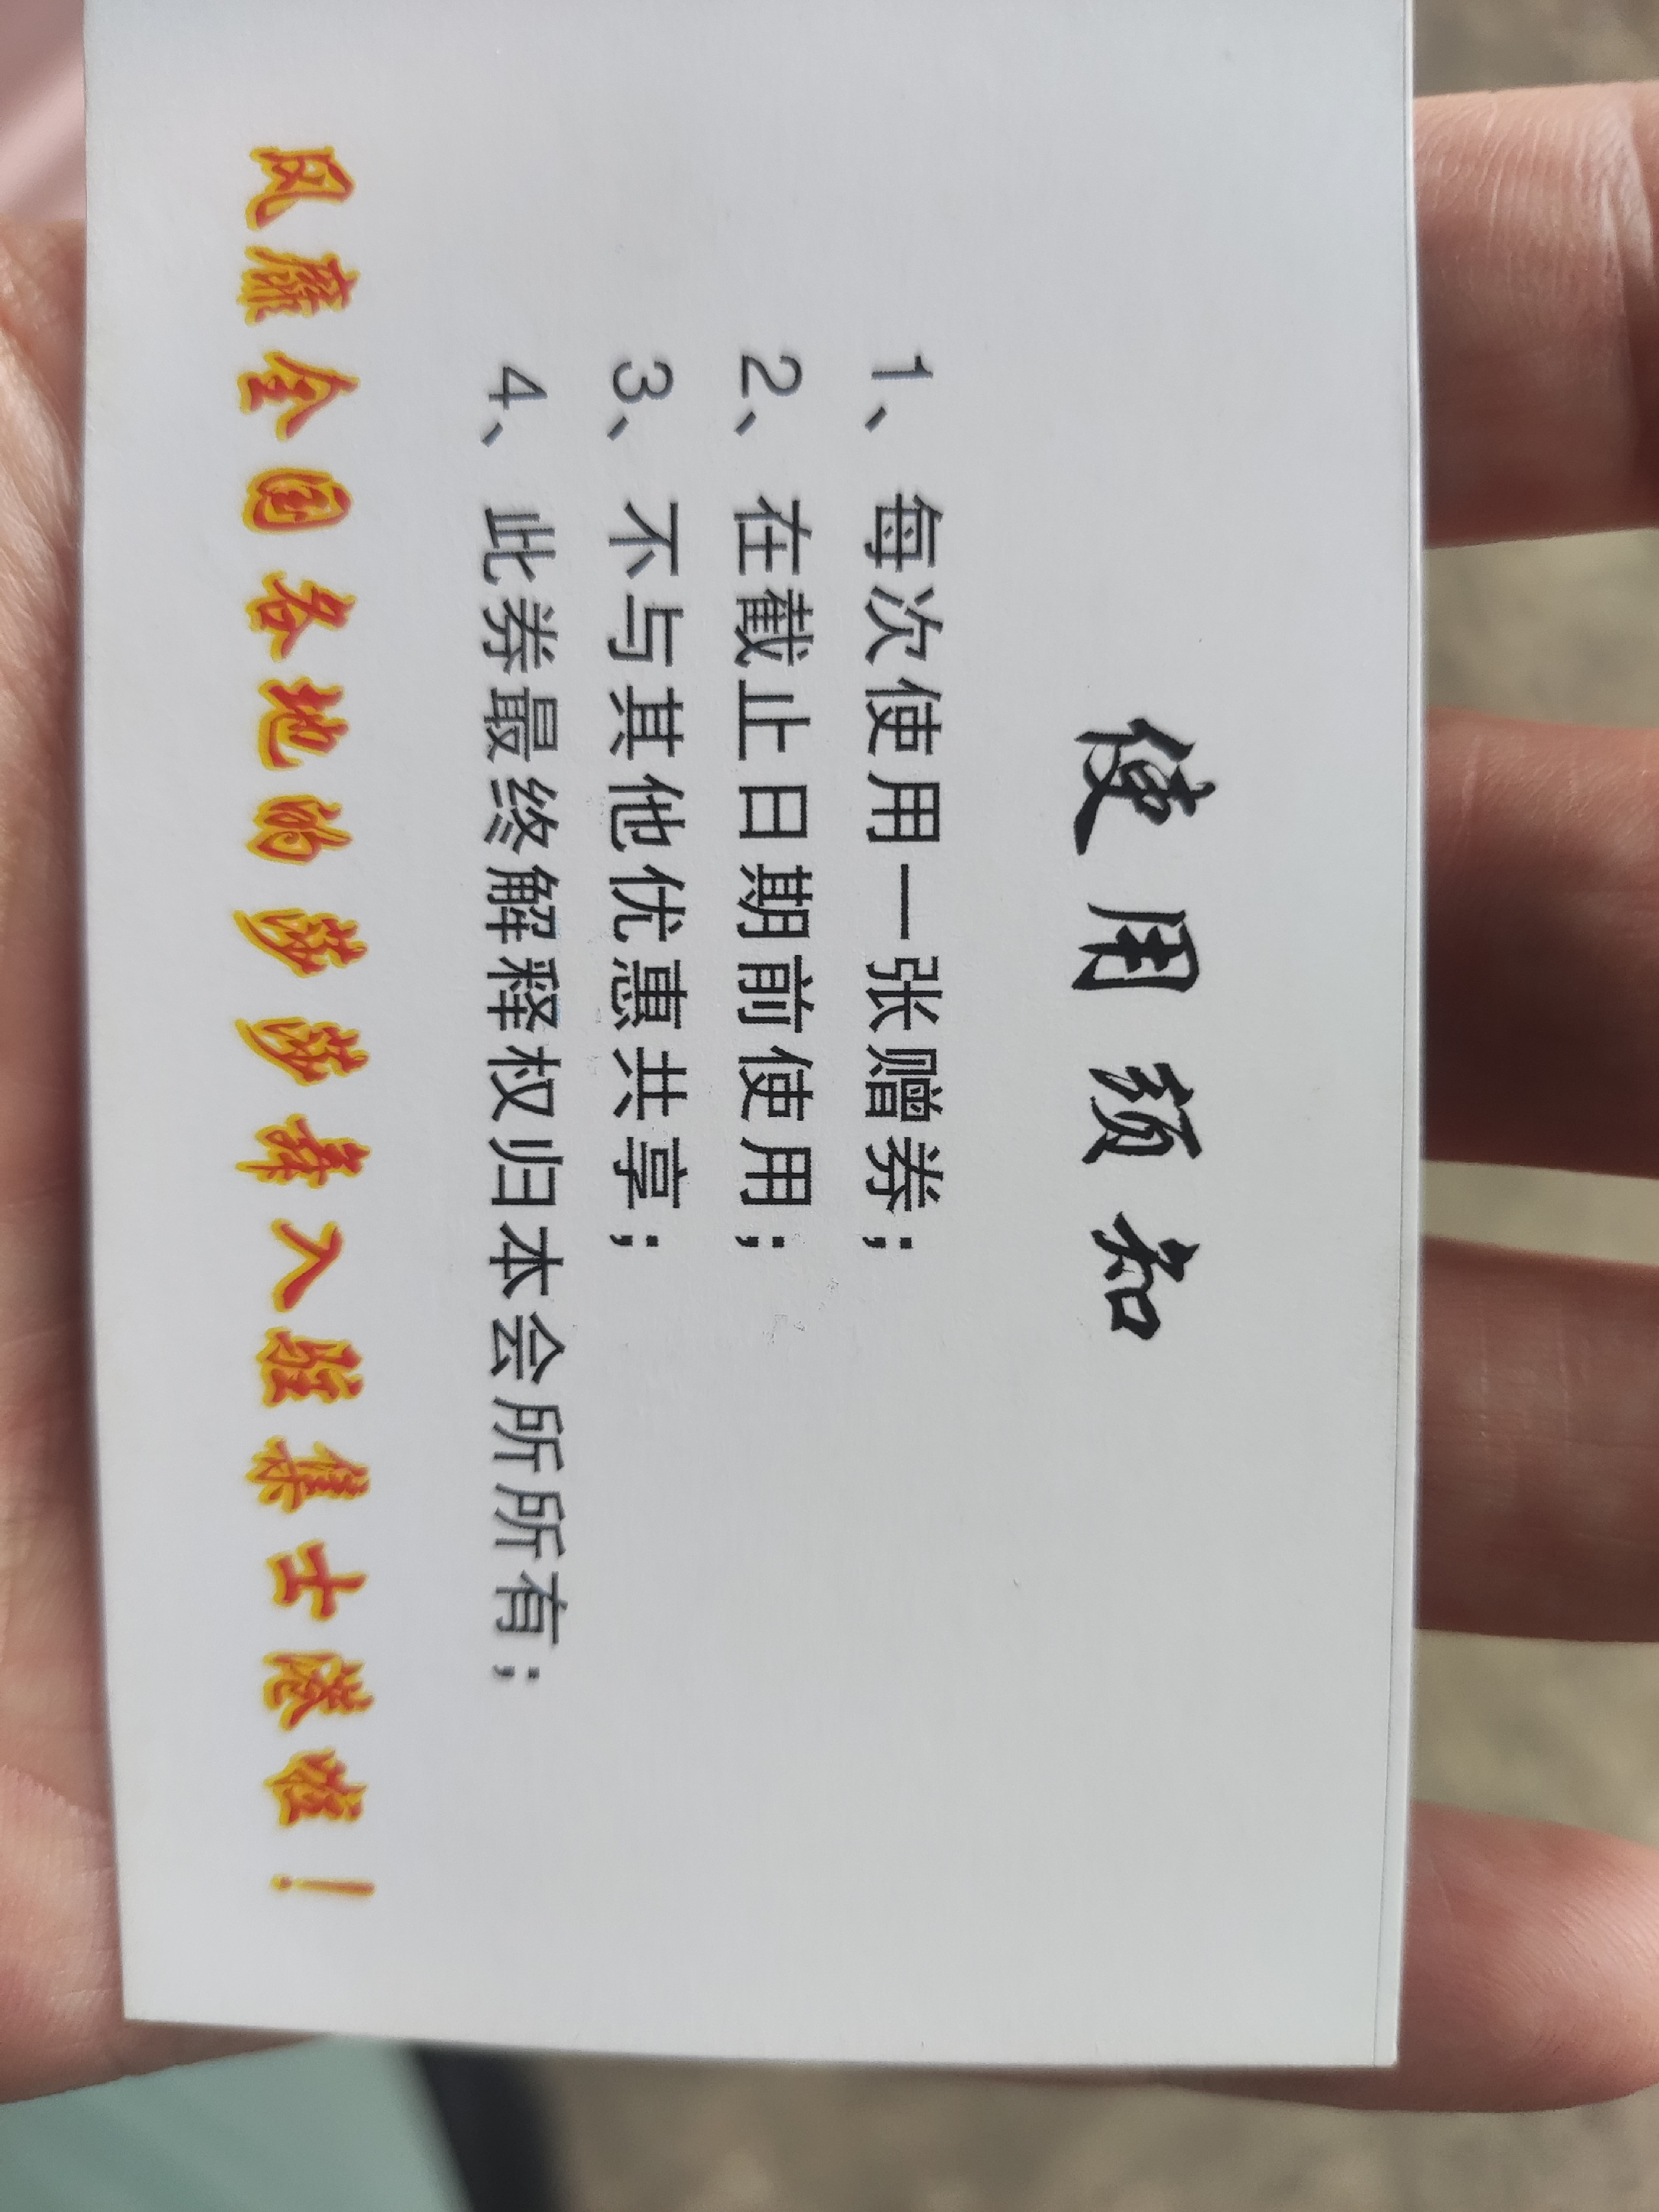 使用须知
1、每次使用一张赠券；
2、在截止日期前使用；
3、不与其他优惠共享；
4、此券最终解释权归本会所所有；
风靡全国各地的莎莎舞入驻集士港啦！